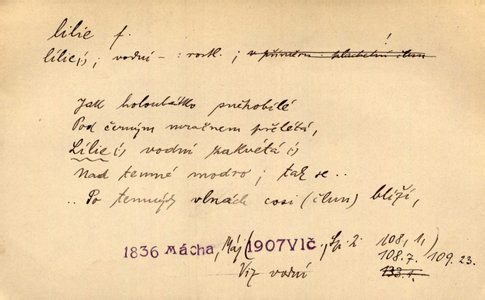 lilie f.
lilie(i); vodní – : rostl. ; v přirovn. plachetní člun !
Jak holoubátko sněhobílé
Pod černým mračnem přelétá,
Lilie(i) vodní zakvétá(i)
Nad temné modro ; tak se ..
.. Po temných vlnách cosi (člun) blíží,
1836 Mácha, Máj (1907Vlč, Sp. 2. 108, 1,)
108.7. 109. 23.
Viz vodní 133.1.